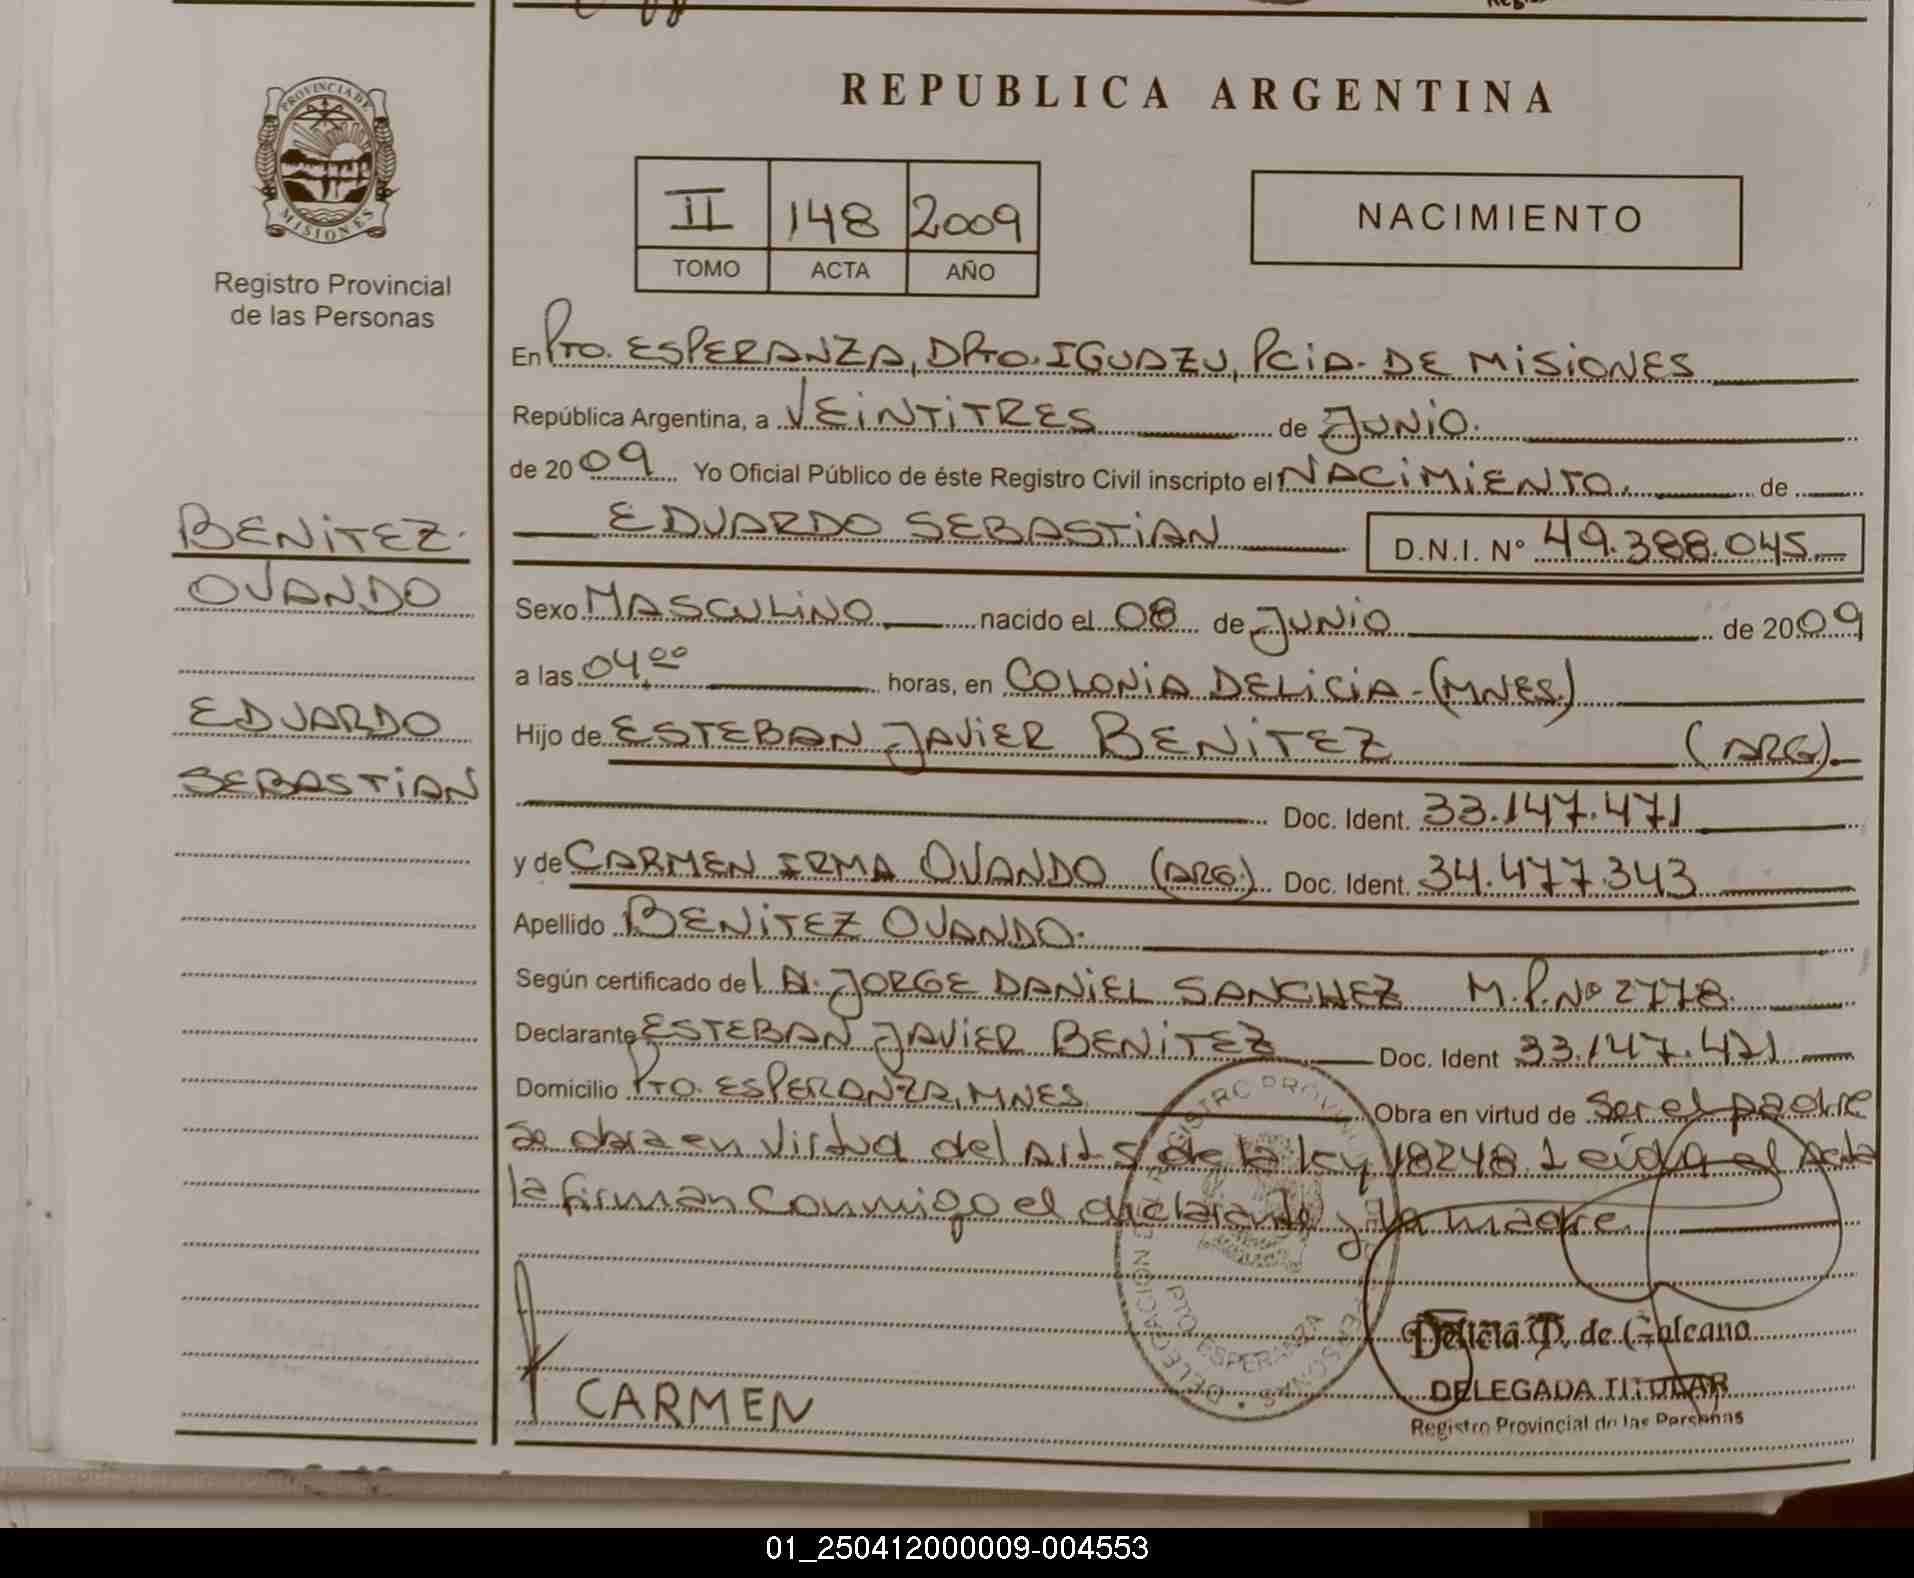 PROVINCIA DE
MISIONES
Registro Provincial
de las Personas
BENITEZ.
OVANDO
EDUARDO
SEBASTIAN
REPUBLICA ARGENTINA
II 148 2009
TOMO ACTA AÑO
NACIMIENTO
En Pto. ESPERANZA, DPto. IGUAZU, PCiA. DE MISIONES
República Argentina, a VEINTITRES de JUNIO.
de 2009 Yo Oficial Público de éste Registro Civil inscripto el NACIMIENTO. de
EDUARDO SEBASTIAN D.N.I. N° 49.388.045
Sexo MASCULINO nacido el 08 de JUNIO de 2009
a las 04.00 horas, en COLONIA DELICIA - (MNES.)
Hijo de ESTEBAN JAVIER BENITEZ (ARG).
Doc. Ident. 33.147.471
y de CARMEN IRMA OVANDO (ARG.) Doc. Ident. 34.477.343
Apellido BENITEZ OVANDO.
Según certificado de JORGE DANIEL SANCHEZ M.P. Nº 2778.
Declarante ESTEBAN JAVIER BENITEZ Doc. Ident 33.147.471
Domicilio Pto. ESPERANZA, MNES. Obra en virtud de ser el padre
se obra en virtud del Art 5 de la ley 18248. Leída el Acta
la firman conmigo el declarante y la madre.
CARMEN
REGISTRO PROVINCIAL DE LAS PERSONAS
DELEGACION
PTO ESPERANZA
Delicia T. de Galeano
DELEGADA TITULAR
Registro Provincial de las Personas
01_250412000009-004553